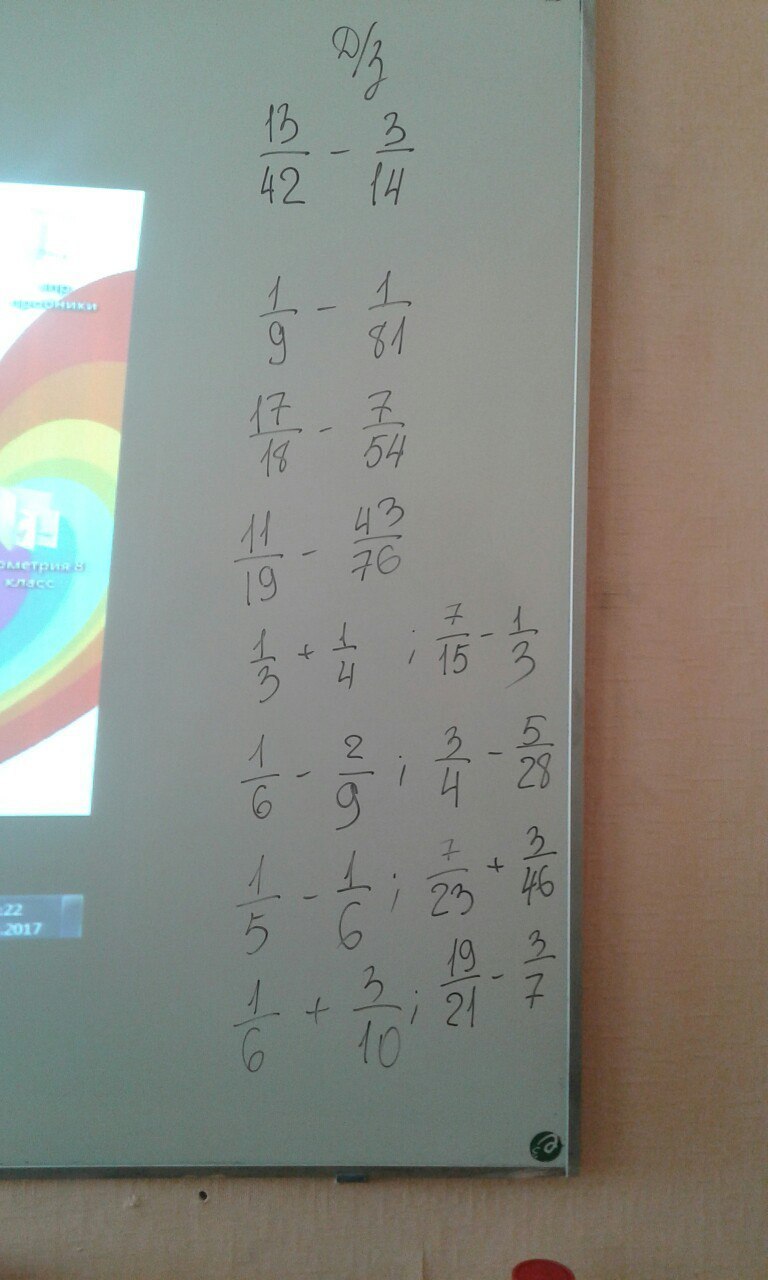 Д/з
13/42 - 3/14
1/9 - 1/81
17/18 - 7/54
11/19 - 43/76
1/3 + 1/4 ; 7/15 - 1/3
1/6 - 2/9 ; 3/4 - 5/28
1/5 - 1/6 ; 7/23 + 3/46
1/6 + 3/10 ; 19/21 - 3/7
класс
:22
.2017